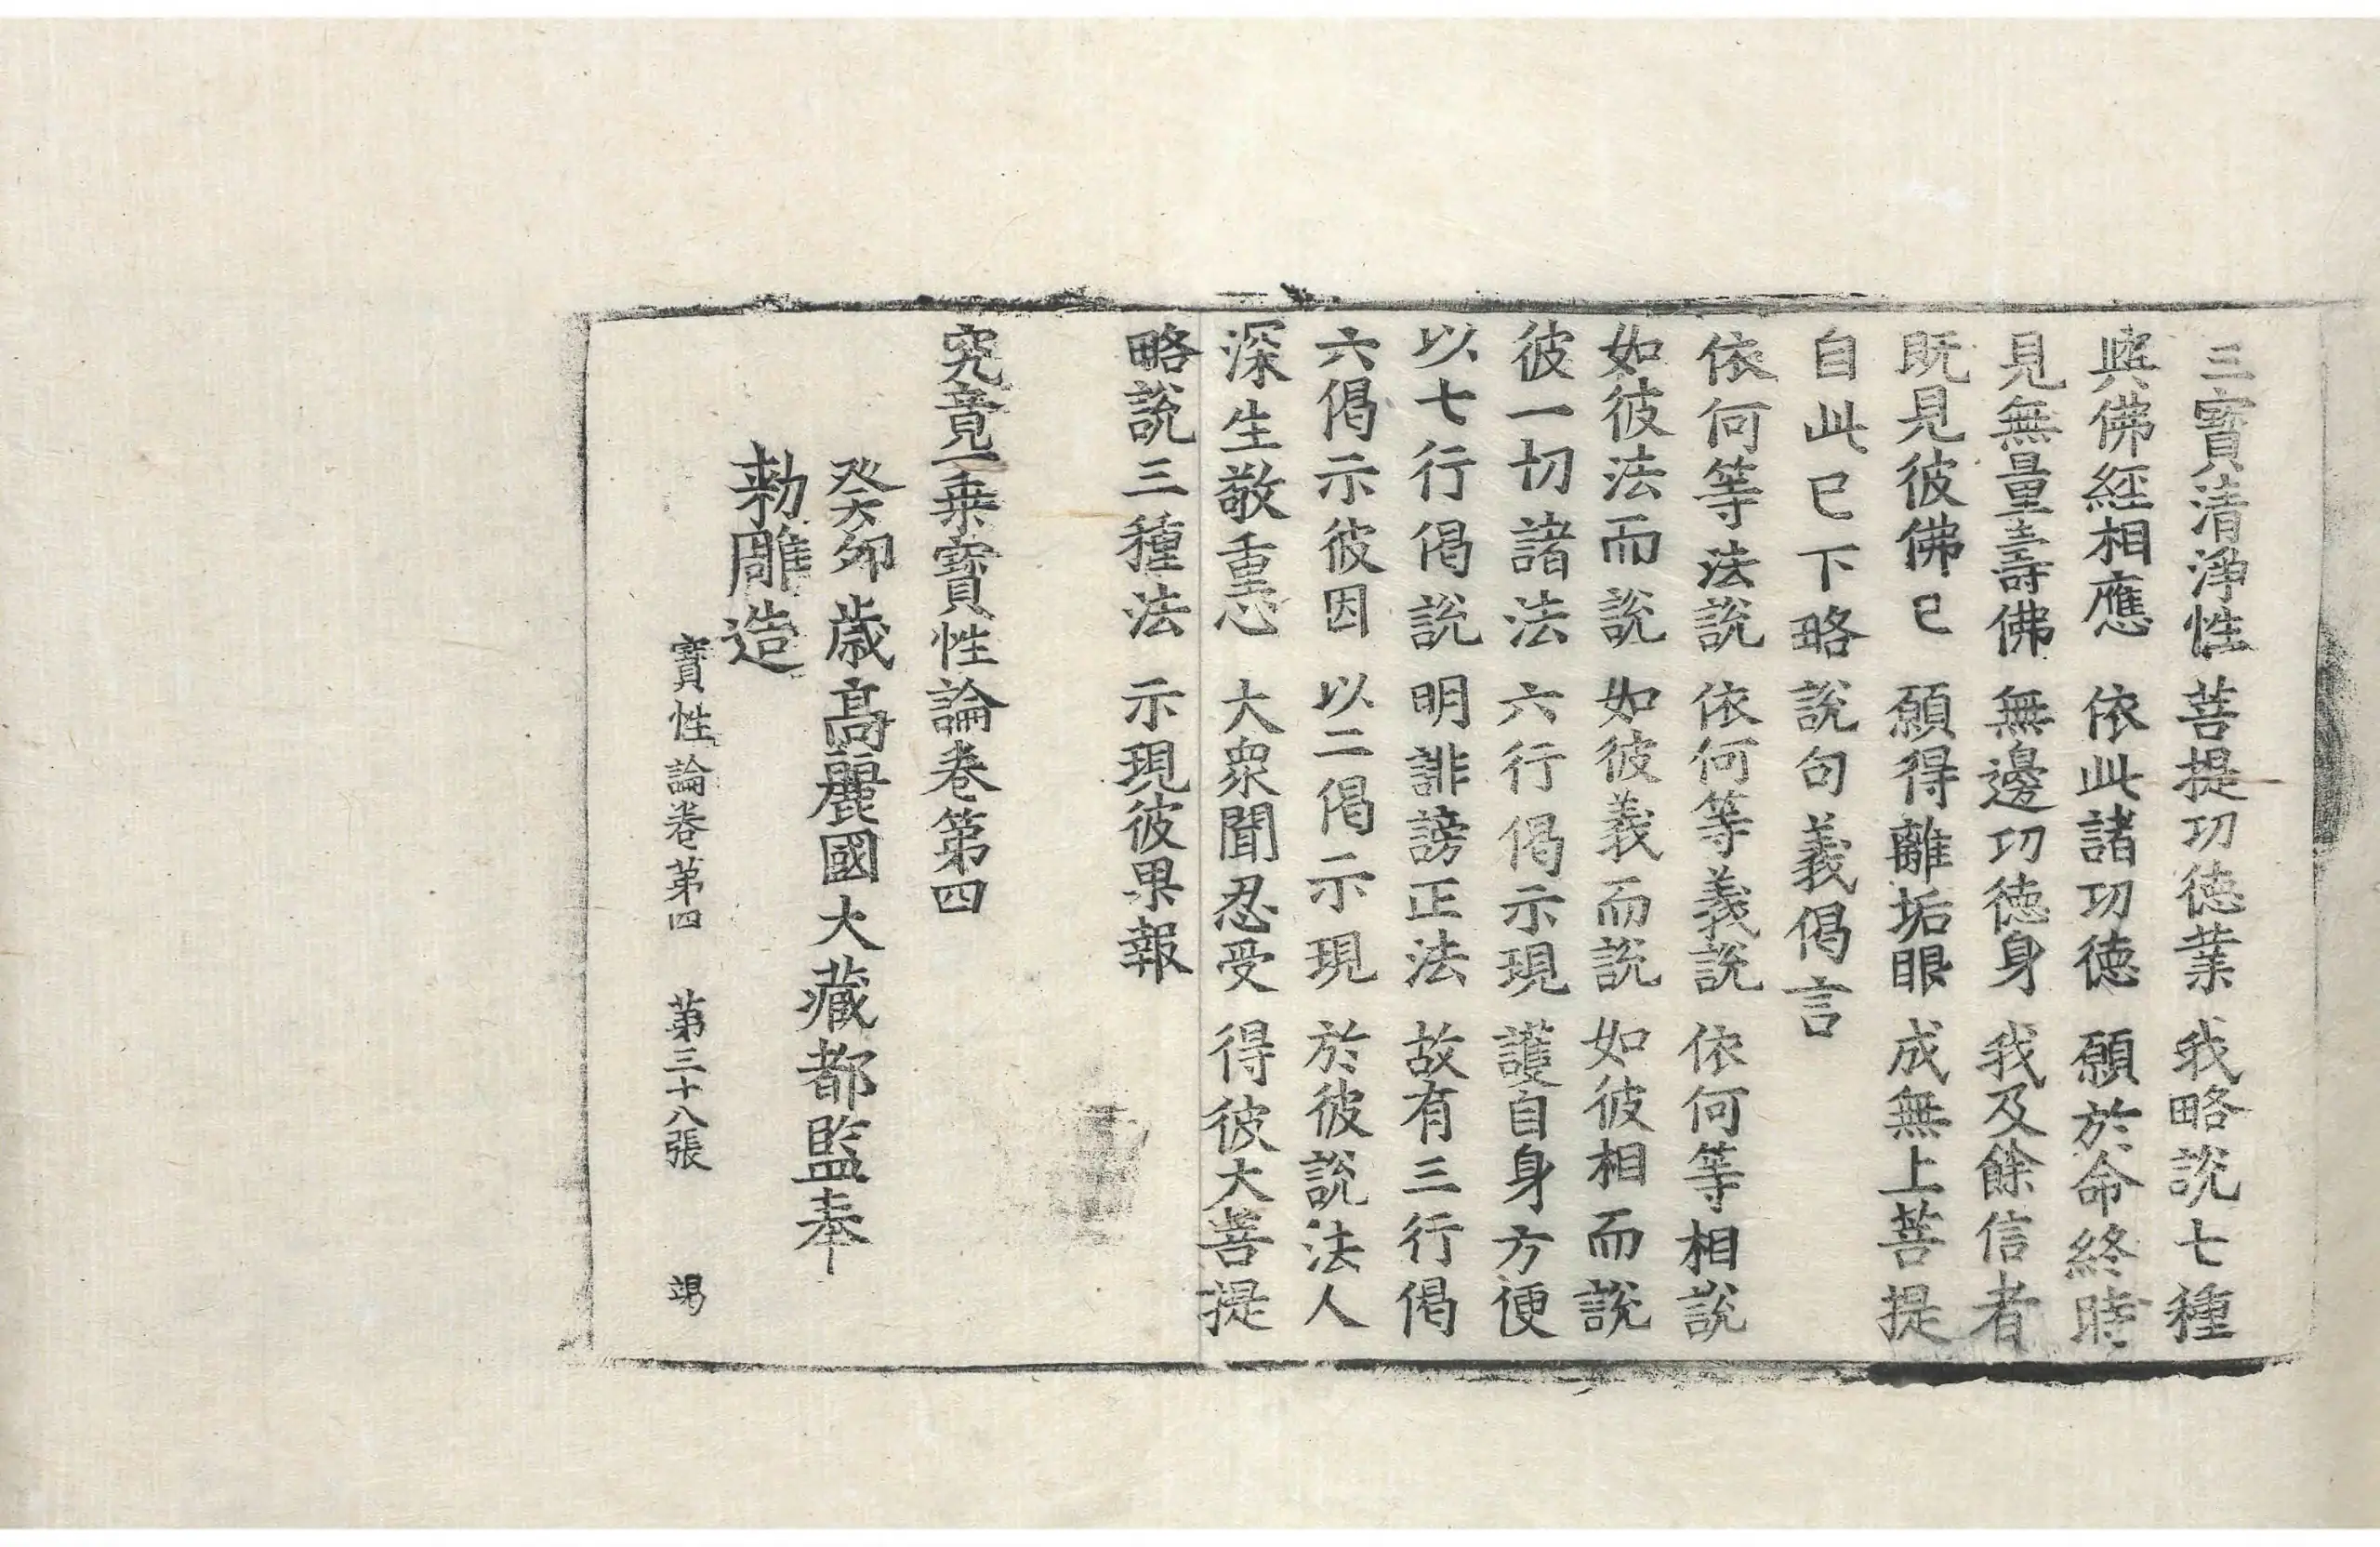 三寶清淨性 菩提功德業 我略說七種
與佛經相應 依此諸功德 願於命終時
見無量壽佛 無邊功德身 我及餘信者
既見彼佛已 願得離垢眼 成無上菩提
自此已下略說句義偈言
依何等法說 依何等義說 依何等相說
如彼法而說 如彼義而說 如彼相而說
彼一切諸法 六行偈示現 護自身方便
以七行偈說 明誹謗正法 故有三行偈
六偈示彼因 以二偈示現 於彼說法人
深生敬重心 大衆聞忍受 得彼大菩提
略說三種法 示現彼果報
究竟一乗寶性論卷第四
癸卯歲高麗國大藏都監奉
勅雕造
寶性論卷第四 第三十八張 竭